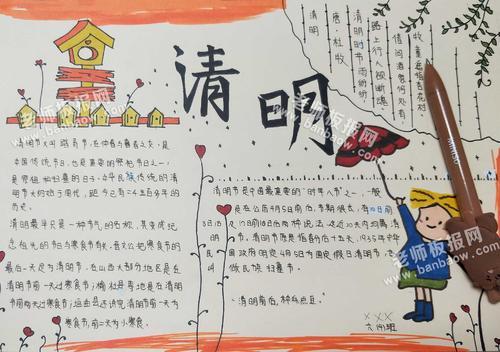 清明
清明
唐·杜牧
清明时节雨纷纷
路上行人欲断魂
借问酒家何处有
牧童遥指杏花村
清明节又叫踏青节，在仲春与暮春之交，是
中国传统节日，也是最重要的祭祀节日之一，
是祭祖和扫墓的日子。中华民族传统的清
明节大约始于周代，距今已有二千五百多年的
历史。
清明最早只是一种节气的名称，其变成纪
念祖先的节日与寒食节有关。晋文公把寒食节的
最后一天定为清明节，在山西大部分地区是在
清明节前一天过寒食节；榆社县等地是在清明
节前两天过寒食节；垣曲县还讲究清明节前一天为
寒食节，前二天为小寒食。
清明节是中国最重要的"时年八节"之一，一般
是在公历4月5日前后，节期很长，有10日前
8日后及10日前10日后两种说法，这近20天内均属清
明节。清明节原是指春分后十五天，1935年中华
民国政府明定4月5日为国定假日清明节，也
做民族扫墓节。
"清明前后，种瓜点豆。"
XXX
六(4)班
老师板报网
www.banbaow.com
老师板报网
www.banbaow.com
老师板报网
www.banbaow.com